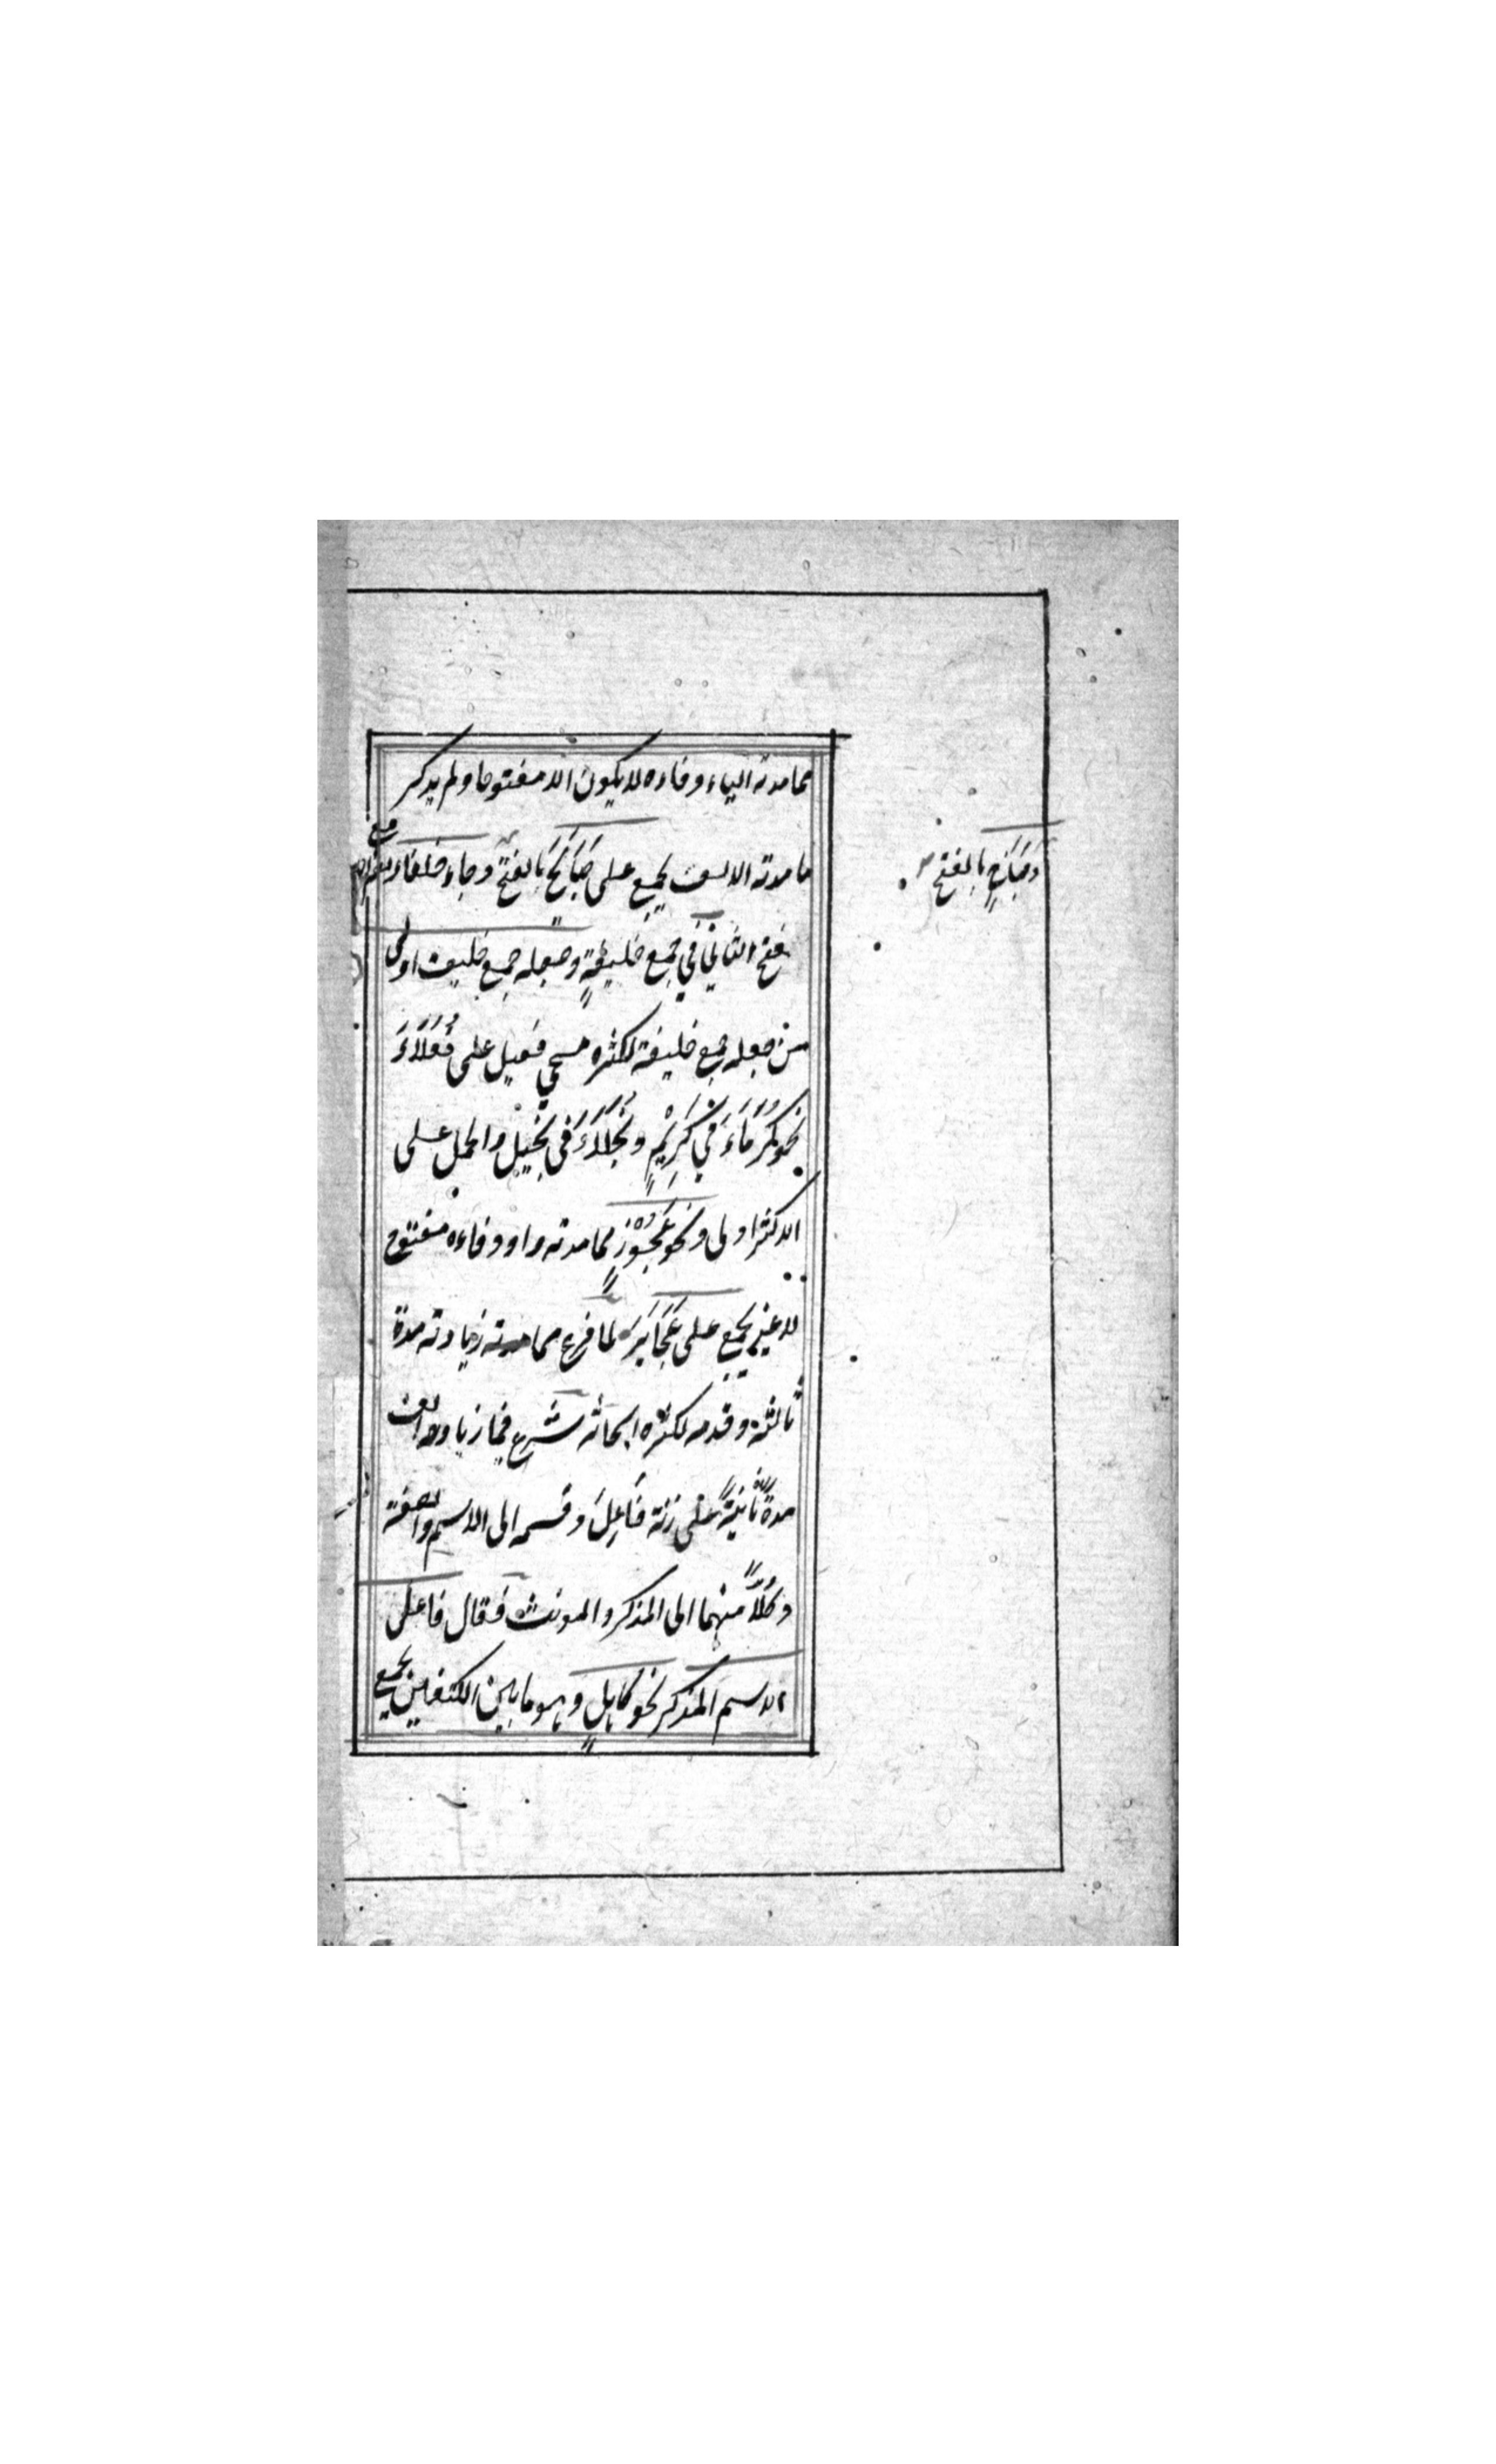 مما مدته الياء وفاءه لا يكون الا مفتوحا ولم يذكر
ما مدته الالف يجمع على صَبَائحَ بالفتح وجاء خلفاء بضم الاول مع
فتح الثاني في جمع خليفةٍ وجعله جمع خليف اولى
من جعله جمع خليفة لكثره مجي فعيل على فُعَلَاءَ
نحو كُرَمَاءَ في كَرِيْمٍ وبُخَلَاءَ في بخيل والحمل على
الاكثر اولى ونحو عَجُوْزٍ مما مدته واو وفاءه مفتوح
لا غير يجمع على عَجَائزَ لما فرغ مما زيادته مدة
ثالثة وقدمه لكثره ابحاثه شرع فيما زيادته الف
مدةً ثانيةً على زنة فَاعِل وقسمه الى الاسم والصفة
وكُلًّا منهما الى المذكر والمونث فقال فاعل
الاسم المذكر نحو كاهلٍ وهو ما بين الكتفين يجمع
بالفتح